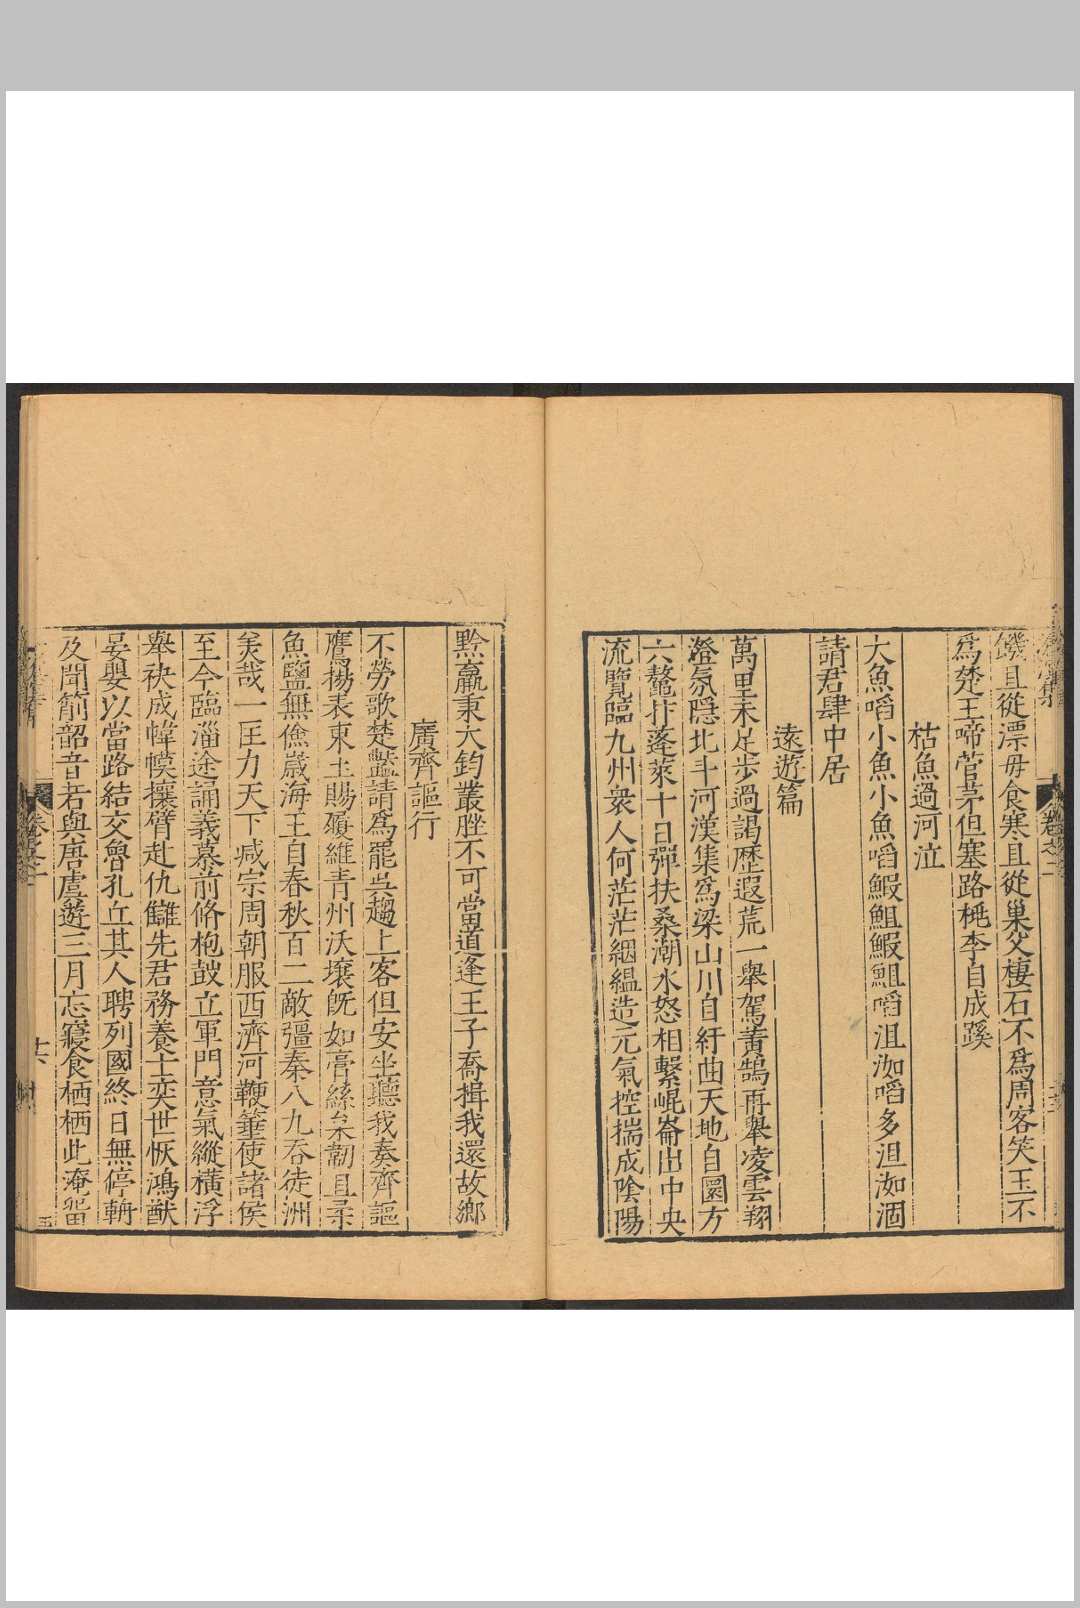 饑且從漂母食寒且從巢父棲石不爲周客笑玉不
爲楚王啼菅茅但塞路桃李自成蹊
枯魚過河泣
大魚啗小魚小魚啗鰕䱉鰕䱉啗沮洳啗多沮洳涸
請君肆中居
遠遊篇
萬里未足步過謁歷遐荒一舉駕黃鵠再舉凌雲翔
澄氛隱北斗河漢集爲梁山川自紆曲天地自圜方
六鼇抃蓬萊十日彈扶桑潮水怒相繫崐崙出中央
流覽臨九州衆人何茫茫絪縕造元氣控揣成陰陽
黔羸秉大鈞叢脞不可當道逢王子喬揖我還故鄉
廣齊謳行
不勞歌楚豔請爲罷吳趨上客但安坐聽我奏齊謳
鷹揚表東土賜履維青州沃壤旣如膏絲枲韌且柔
魚鹽無儉嵗海王自春秋百二敵彊秦八九吞徒洲
羙哉一匡力天下咸宗周朝服西濟河鞭箠使諸侯
至今臨淄途誦義慕前脩枹鼓立軍門意氣縱橫浮
舉袂成幃幙攘臂赴仇讎先君務養士奕世恢鴻猷
晏嬰以當路結交魯孔丘其人聘列國終日無停輈
及聞箾韶音若與唐虞遊三月忘寢食栖栖此淹畱
卷之一
十六